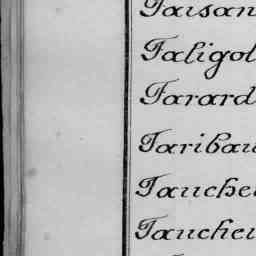 Taisan
Taligol
Tarard
Taribau
Tauche
Tauche